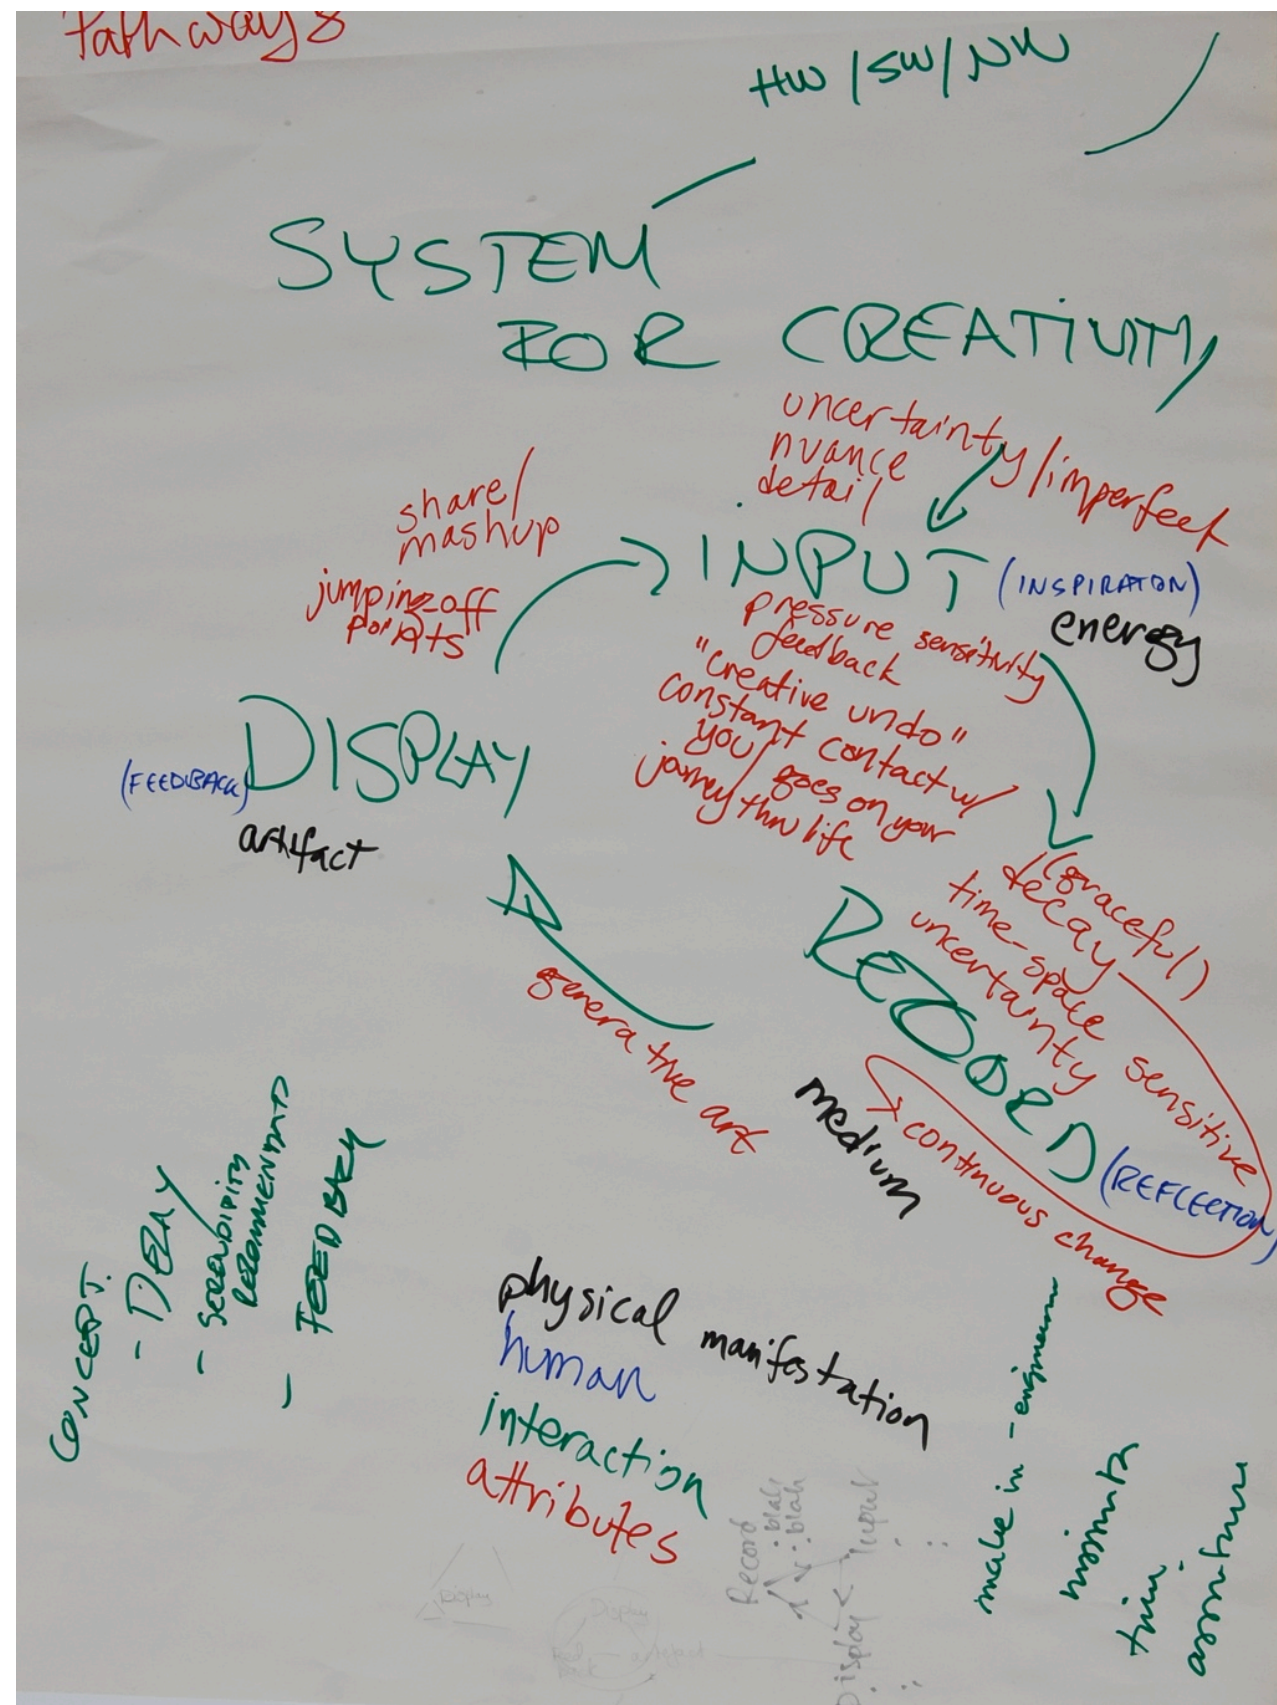 Pathways
HW / SW / NW
SYSTEM
FOR CREATIVITY
uncertainty/imperfect
nuance
detail
share/
mashup
jumping-off
points
INPUT
(INSPIRATION)
energy
pressure sensitivity
feedback
"creative undo"
constant contact w/
you/goes on your
journey thru life
DISPLAY
(FEEDBACK)
artifact
(graceful)
decay
time-space sensitive
uncertainty
RECORD
(REFLECTION)
medium
continuous change
generative art
CONCEPT.
- DECAY
- SERENDIPITY
- FEEDBACK
physical manifestation
human
interaction
attributes
make in -
Record
· blah
· blah
Display
Input
Display
Display